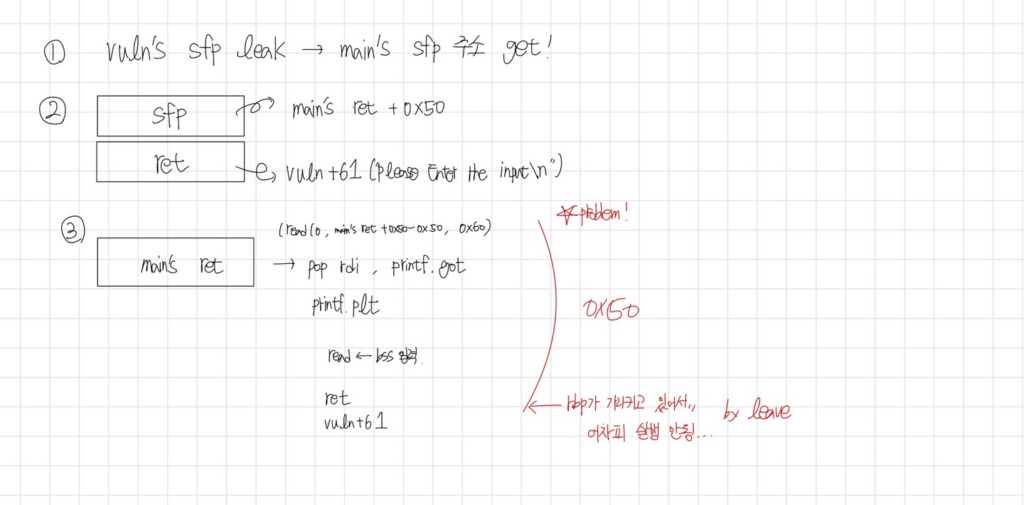 ① vuln's sfp leak → main's sfp 주소 get!
② sfp → main's ret + 0x50
ret → vuln+61 (please Enter the input\n")
③ (read(0, main's ret +0x50-0x50, 0x60)
main's ret → pop rdi, printf.got
printf.plt
read ← bss 입력
ret
vuln+61
☆problem!
0x50
← rbp가 가리키고 있어서,, by leave
어차피 실행 안됨...